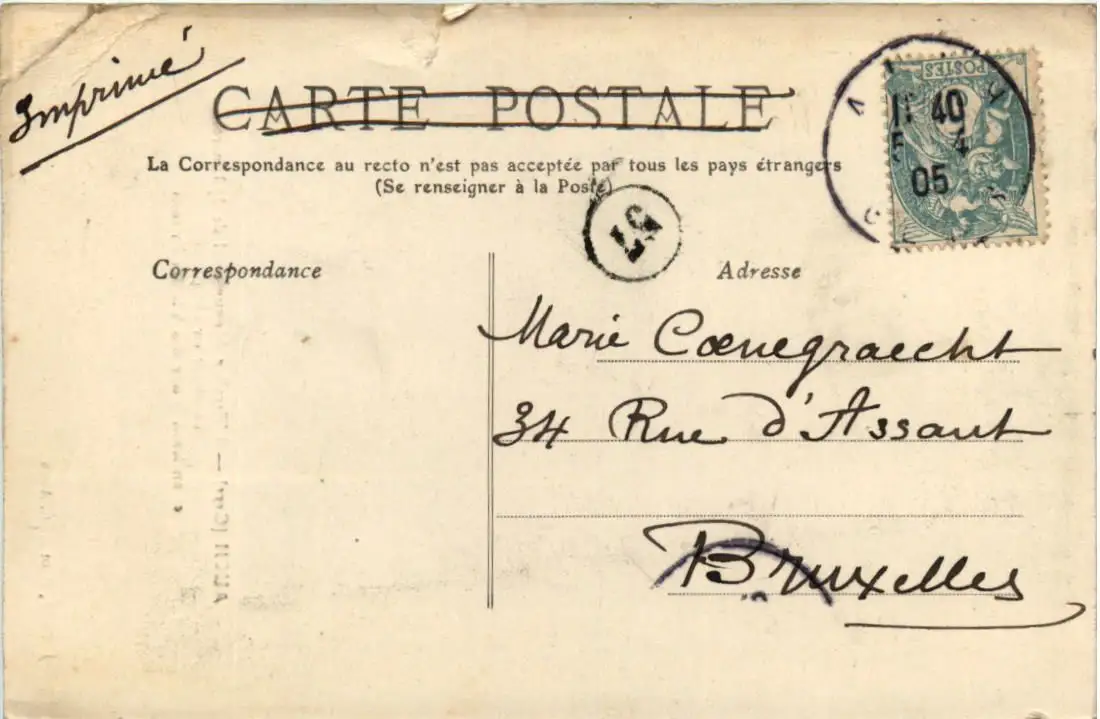 Imprimé
CARTE POSTALE
La Correspondance au recto n'est pas acceptée par tous les pays étrangers
(Se renseigner à la Poste)
POSTES
40
4
05
57
Correspondance
Adresse
Marie Coenegraecht
34 Rue d'Assaut
Bruxelles